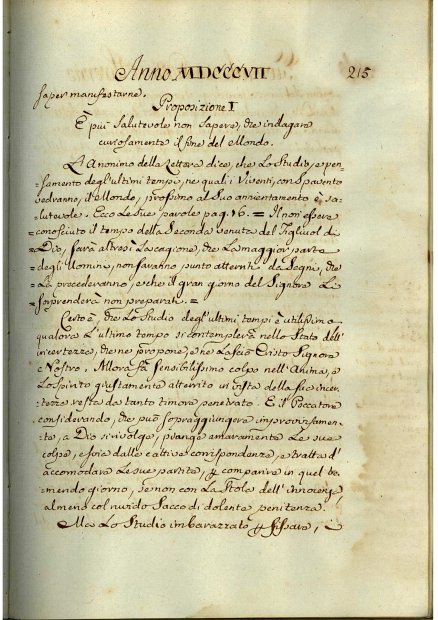 Anno MDCCCVII 215
saper manifestarne.
Proposizione I
È più salutevole non sapere, che indagare
curiosamente il fine del Mondo.
L'Anonimo della Lettera dice, che Lo Studio, e pen-
=samento degl'ultimi tempi, ne quali i Viventi, con Spavento
vedranno, il Mondo, prossimo al Suo annientamento è sa-
lutevole. Ecco Le Sue parole pag. 16. = Il non essere
conosciuto il tempo della Seconda venuta del Figliuol di
=Dio, sarà altresì La cagione, che La maggior parte
degli Uomini, non saranno punto atterriti da Segni, che
La procederanno, e che il gran giorno del Signore Li
sorprenderà non preparati. =
Certo è, che Lo Studio degl'ultimi tempi è utilissimo
qualora L'ultimo tempo si contemplerà nello Stato dell'
incertezza, che ne propone, e ne Lasciò Cristo Signore
Nostro. Allora fa sensibilissimo colpo nell'Anima, e
Lo Spirito giustamente atterrito in vista della sua incer-
tezza resta da tanto timore penetrato. E il Peccatore
considerando, che può sopraggiungere improvvisamen-
te, a Dio si rivolge, piange amaramente Le sue
colpe, e scioglie dalle cattive corrispondenze, e tratta d'
accomodare Le sue partite, p comparire in quel tre-
mendo giorno, se non con La Stola dell'innocenza
almeno col ruvido Sacco di dolente penitenza.
Ma Lo Studio imbarazzato p fissare, i